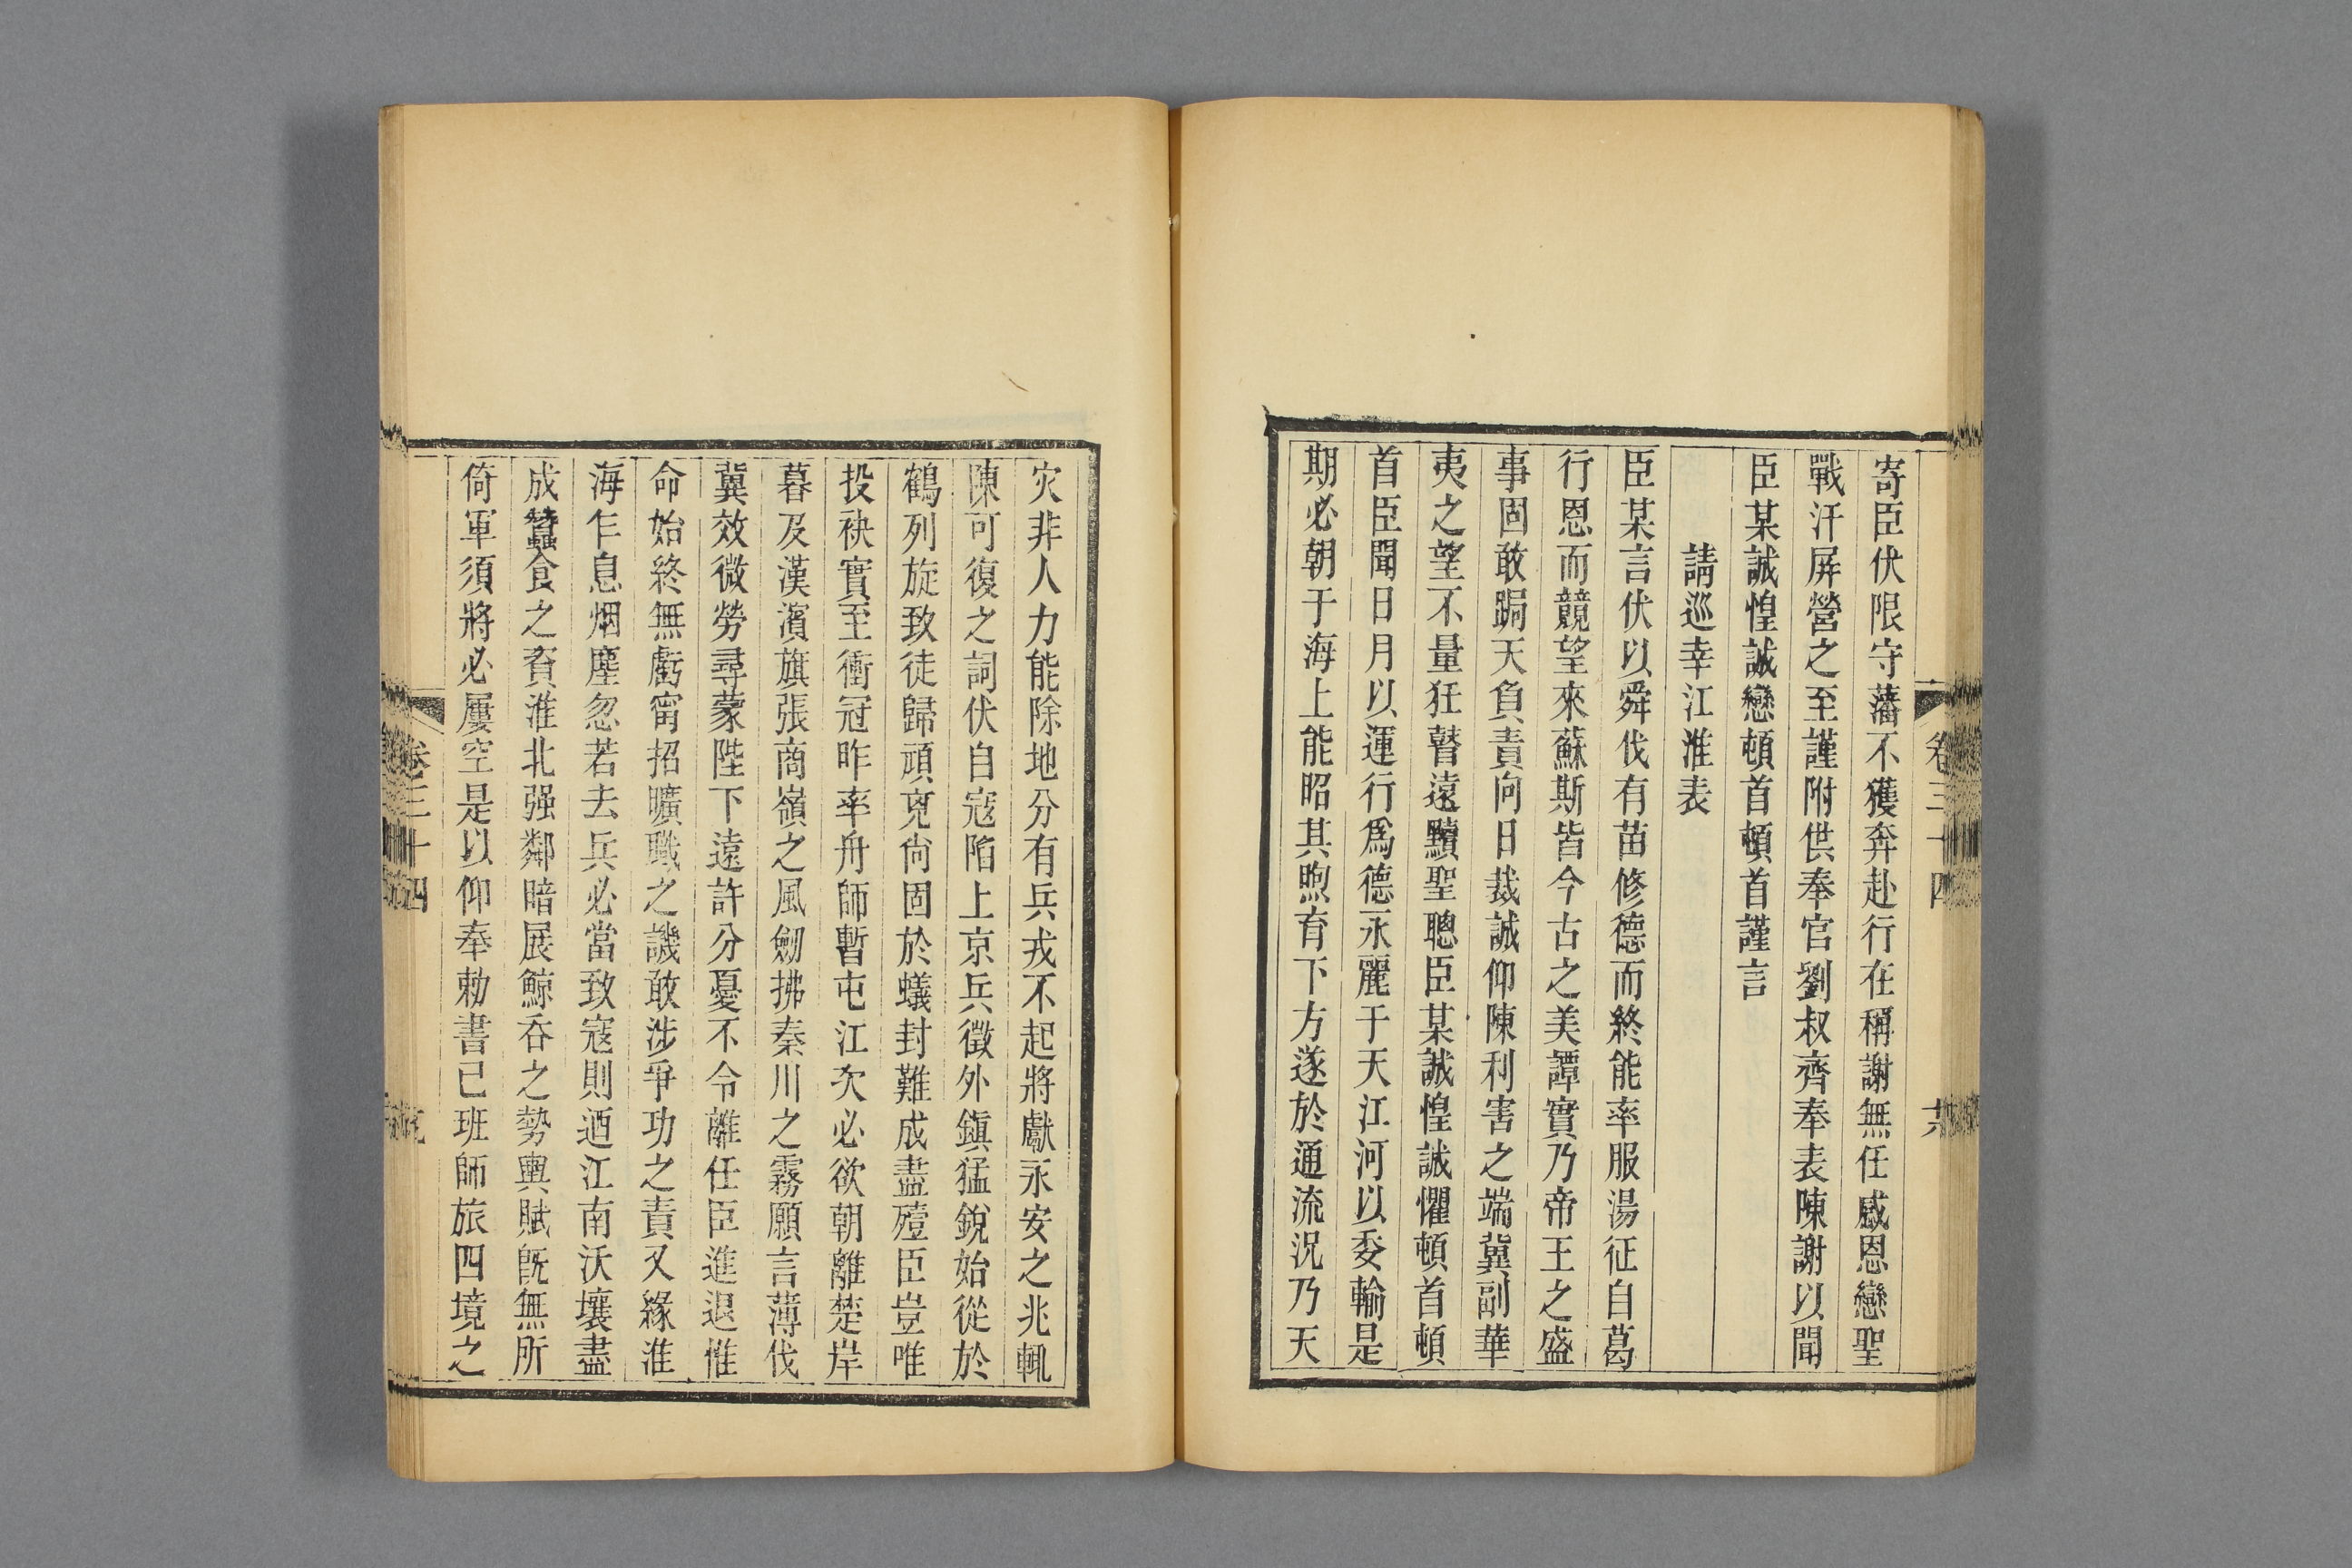 寄臣伏限守藩不獲奔赴行在稱謝無任感恩戀聖
戰汗屏營之至謹附供奉官劉叔齊奉表陳謝以聞
臣某誠惶誠戀頓首頓首謹言
請巡幸江淮表
臣某言伏以舜伐有苗修德而終能率服湯征自葛
行恩而競望來蘇斯皆今古之美譚實乃帝王之盛
事固敢跼天負責向日裁誠仰陳利害之端冀副華
夷之望不量狂瞽遠黷聖聰臣某誠惶誠懼頓首頓
首臣聞日月以運行爲德永麗于天江河以委輸是
期必朝于海上能昭其煦育下方遂於通流況乃天
卷三十四
灾非人力能除地分有兵戎不起將獻永安之兆輒
陳可復之詞伏自寇陷上京兵徵外鎮猛銳始從於
鶴列旋致徒歸頑兇尙固於蟻封難成盡殪臣豈唯
投袂實至衝冠昨率舟師暫屯江次必欲朝離楚岸
暮及漢濱旗張商嶺之風劒拂秦川之霧願言薄伐
冀效微勞尋蒙陛下遠許分憂不令離任臣進退惟
命始終無虧甯招曠職之譏敢涉爭功之責又緣淮
海乍息烟塵忽若去兵必當致寇則迺江南沃壤盡
成蠶食之資淮北强鄰暗展鯨吞之勢輿賦旣無所
倚軍須將必屢空是以仰奉勅書已班師旅四境之
卷三十四